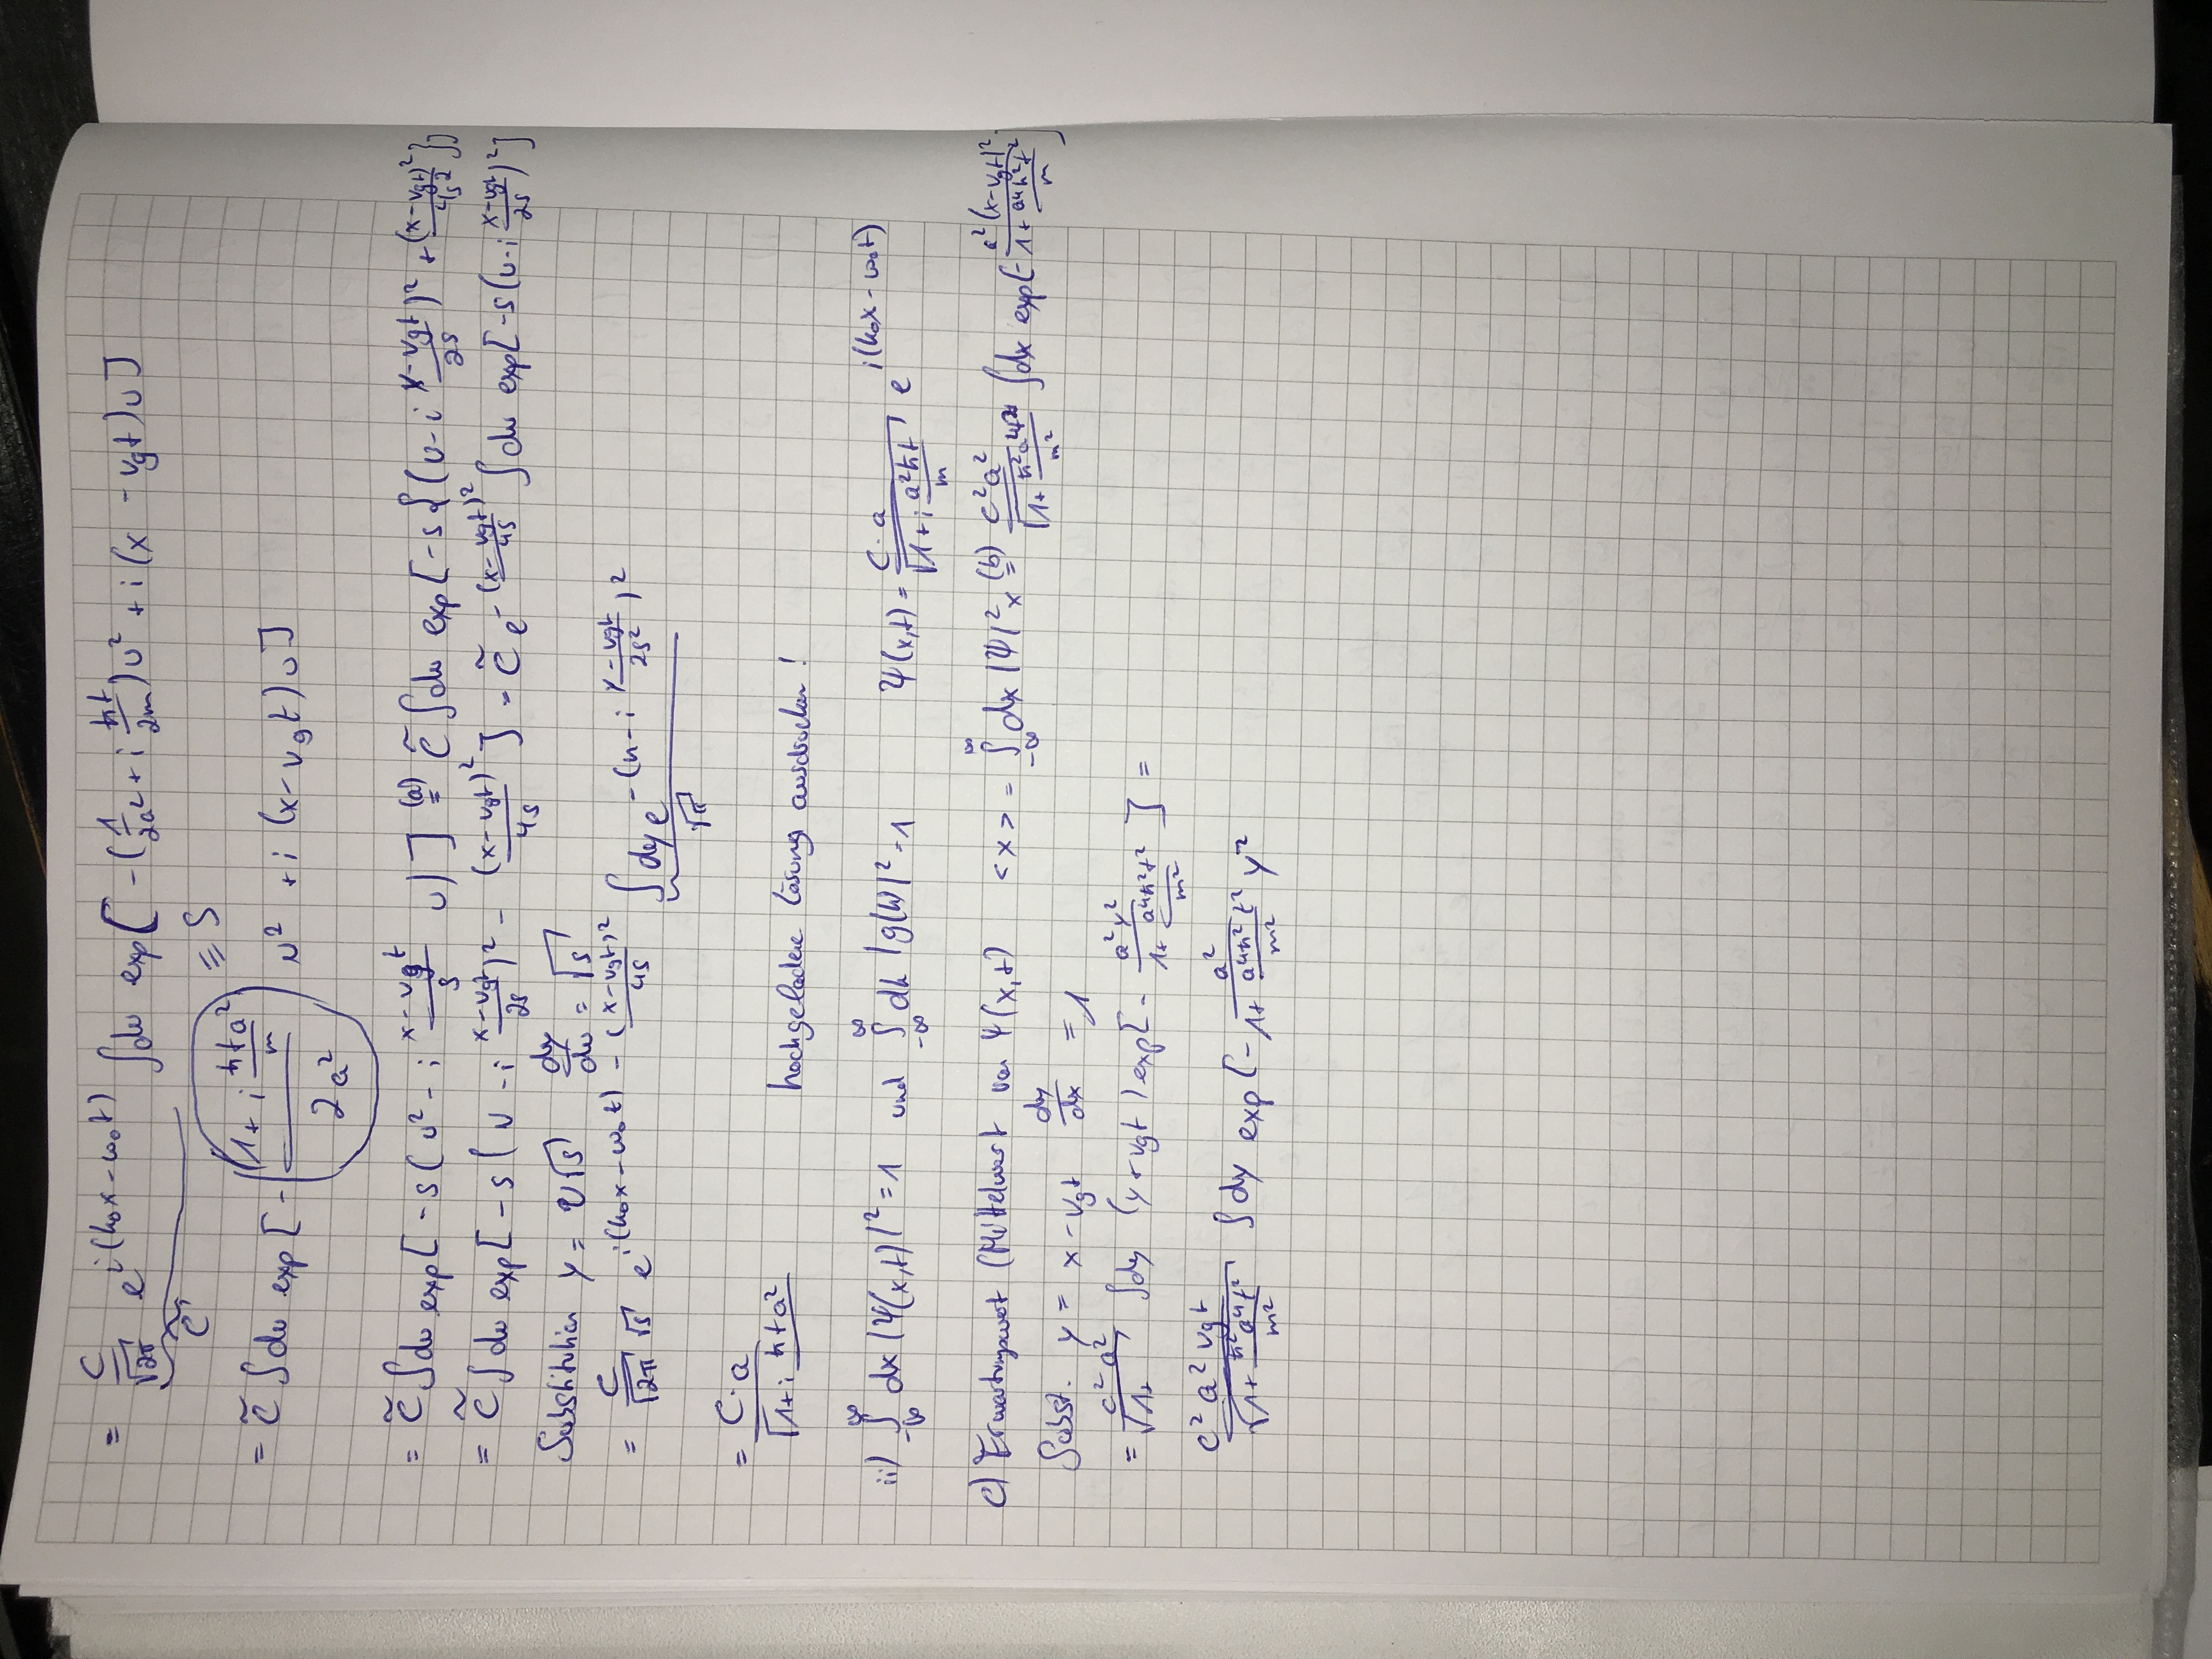 = C/√2π e^{i(k₀x-ω₀t)} ∫du exp[-(1/2a² + i ħt/2m)u² + i(x - v_g t)u]
C̃
≡ S
= C̃ ∫du exp[-(1+i ħta²/m / 2a²) u² + i(x-v_g t)u]
= C̃ ∫du exp[-s(u² - i (x-v_g t)/s u)] (a)= C̃ ∫du exp[-s{(u-i (x-v_g t)/2s)² + (x-v_g t)²/4s²}]
= C̃ ∫du exp[-s(u - i (x-v_g t)/2s)² - (x-v_g t)²/4s] = C̃ e^{-(x-v_g t)²/4s} ∫du exp[-s(u-i (x-v_g t)/2s)²]
Substitution y = u√s dy/du = √s
= C/√2π √s e^{i(k₀x-ω₀t) - (x-v_g t)²/4s} ∫dy e^{-(u-i (x-v_g t)/2s²)²}
√π
= C·a/√1+i ħta²
hochgeladene Lösung ausdrucken!
ii) ∫_{-∞}^{∞} dx |Ψ(x,t)|² = 1 und ∫_{-∞}^{∞} dk |g(k)|² = 1 Ψ(x,t) = C·a/√1+i a²ħt/m e^{i(k₀x-ω₀t)}
c) Erwartungswert (Mittelwert von Ψ(x,t) <x> = ∫_{-∞}^{∞} dx |Ψ|² x (b)= C²a²/√1+ ħ²a⁴t²/m² ∫dx exp[- a²(x-v_g t)²/1+ a⁴ħ²t²/m]
Subst. y = x-v_g t dy/dx = 1
= c²a²/√1+ ∫dy (y+v_g t) exp[- a²y²/1+ a⁴ħ²t²/m²] =
c²a²v_g t/√1+ ħ²a⁴t²/m² ∫dy exp[- a²/1+ a⁴ħ²t²/m² y²